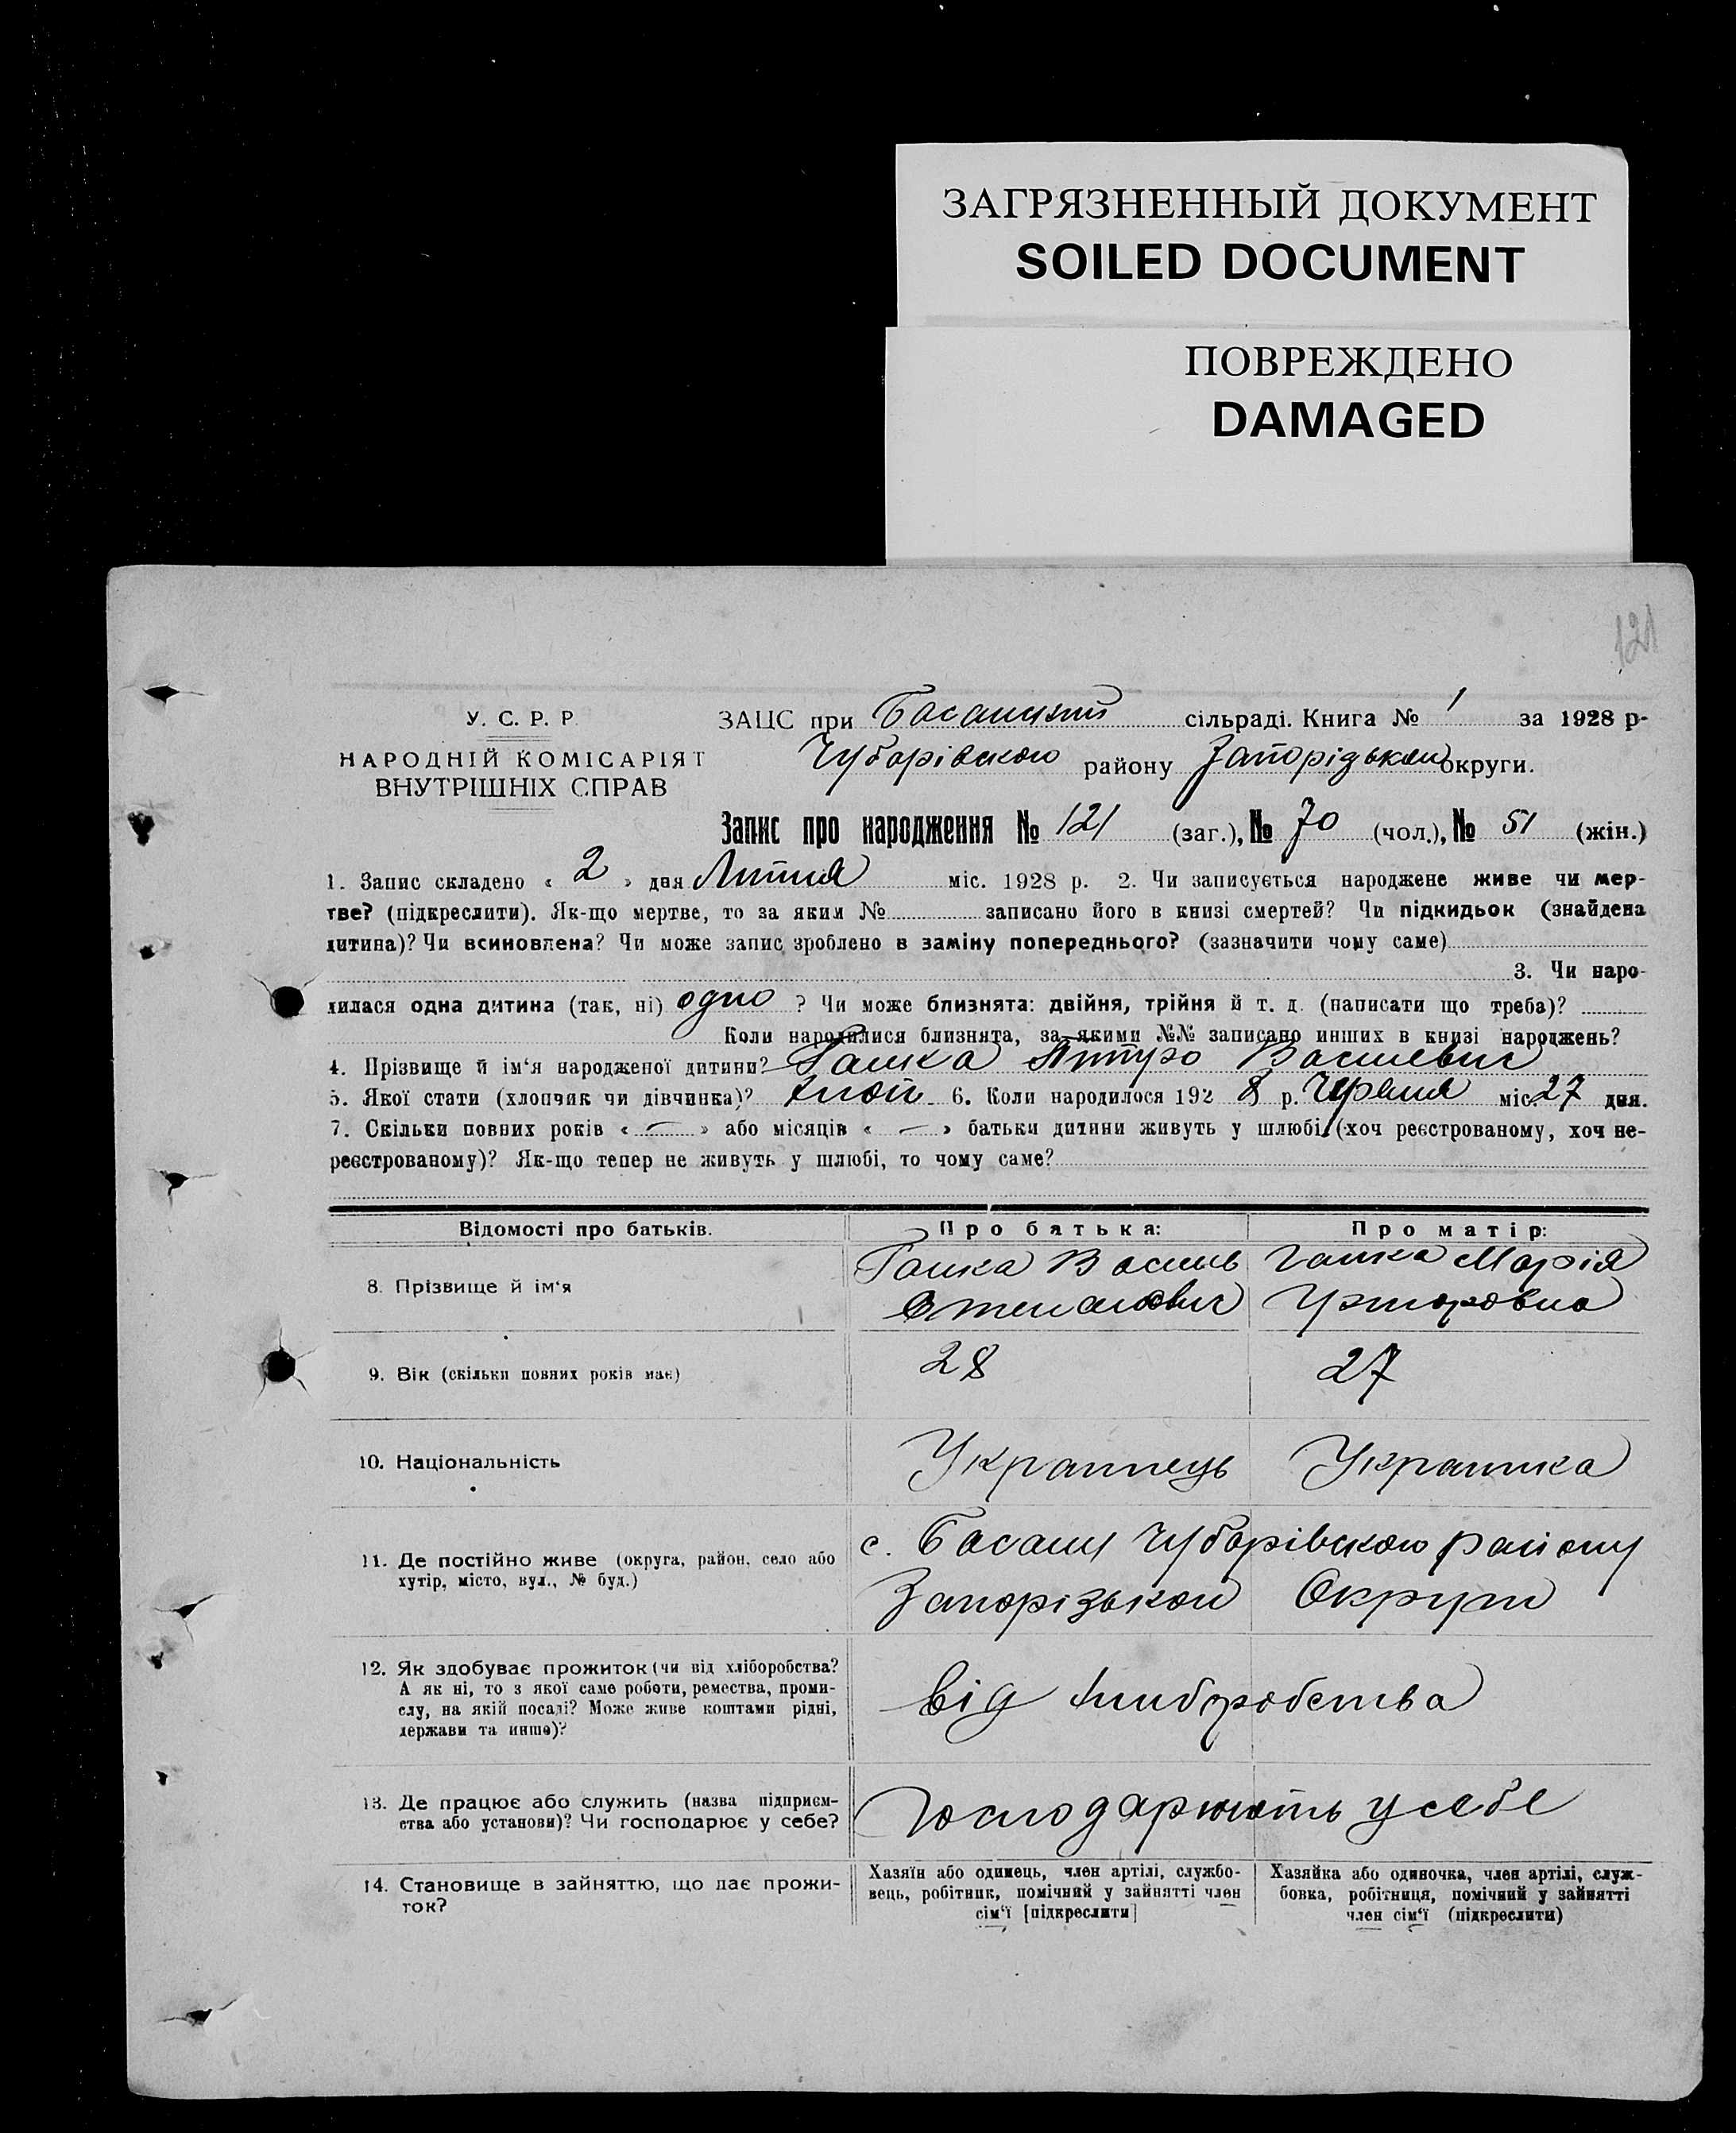 ЗАГРЯЗНЕННЫЙ ДОКУМЕНТ
SOILED DOCUMENT
ПОВРЕЖДЕНО
DAMAGED
121
У. С. Р. Р.
НАРОДНІЙ КОМІСАРІЯТ
ВНУТРІШНІХ СПРАВ
ЗАЦС при Басанській сільраді. Книга № 1 за 1928 р-
Чубарівського району Запорізької округи.
Запис про народження № 121 (заг.), № 70 (чол.), № 51 (жін.)
1. Запис складено « 2 » дня Липня міс. 1928 р. 2. Чи записується народжене живе чи мер-
тве? (підкреслити). Як-що мертве, то за яким № записано його в книзі смертей? Чи підкидьок (знайдена
дитина)? Чи всиновлена? Чи може запис зроблено в заміну попереднього? (зазначити чому саме)
3. Чи наро-
дилася одна дитина (так, ні) одно ? Чи може близнята: двійня, трійня й т. д. (написати що треба)?
Коли народилися близнята, за якими №№ записано инших в книзі народжень?
4. Прізвище й ім'я народженої дитини? Гашка Василевич
5. Якої стати (хлопчик чи дівчинка)? 6. Коли народилося 192 8 р. Червня міс. 27 дня.
7. Скільки повних років « — » або місяців « — » батьки дитини живуть у шлюбі (хоч реєстрованому, хоч не-
реєстрованому)? Як-що тепер не живуть у шлюбі, то чому саме?
Відомості про батьків. Про батька: Про матір:
8. Прізвище й ім'я
Гашка Василь
Степанович
Гашка Марія
9. Вік (скільки повних років має) 28 27
10. Національність Українець Українка
11. Де постійно живе (округа, район, село або
хутір, місто, вул., № буд.)
с. Басань Чубарівського району
Запорізької Округи
12. Як здобуває прожиток (чи від хліборобства?
А як ні, то з якої саме роботи, ремества, проми-
слу, на якій посаді? Може живе коштами рідні,
держави та инше)?
від хліборобства
13. Де працює або служить (назва підприєм-
ства або установи)? Чи господарює у себе?
Господарюють у себе
14. Становище в зайняттю, що дає прожи-
ток?
Хазяїн або одинець, член артілі, службо-
вець, робітник, помічний у зайнятті член
сім'ї [підкреслити]
Хазяйка або одиночка, член артілі, служ-
бовка, робітниця, помічний у зайнятті
член сім'ї (підкреслити)